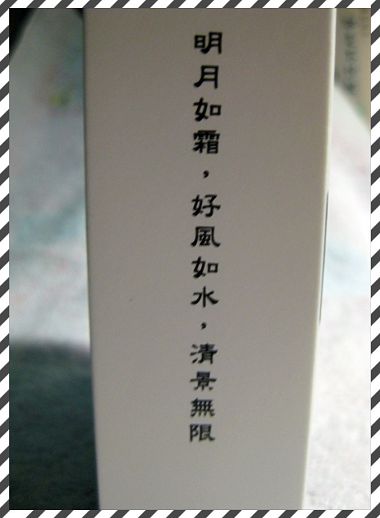 明月如霜，好風如水，清景無限